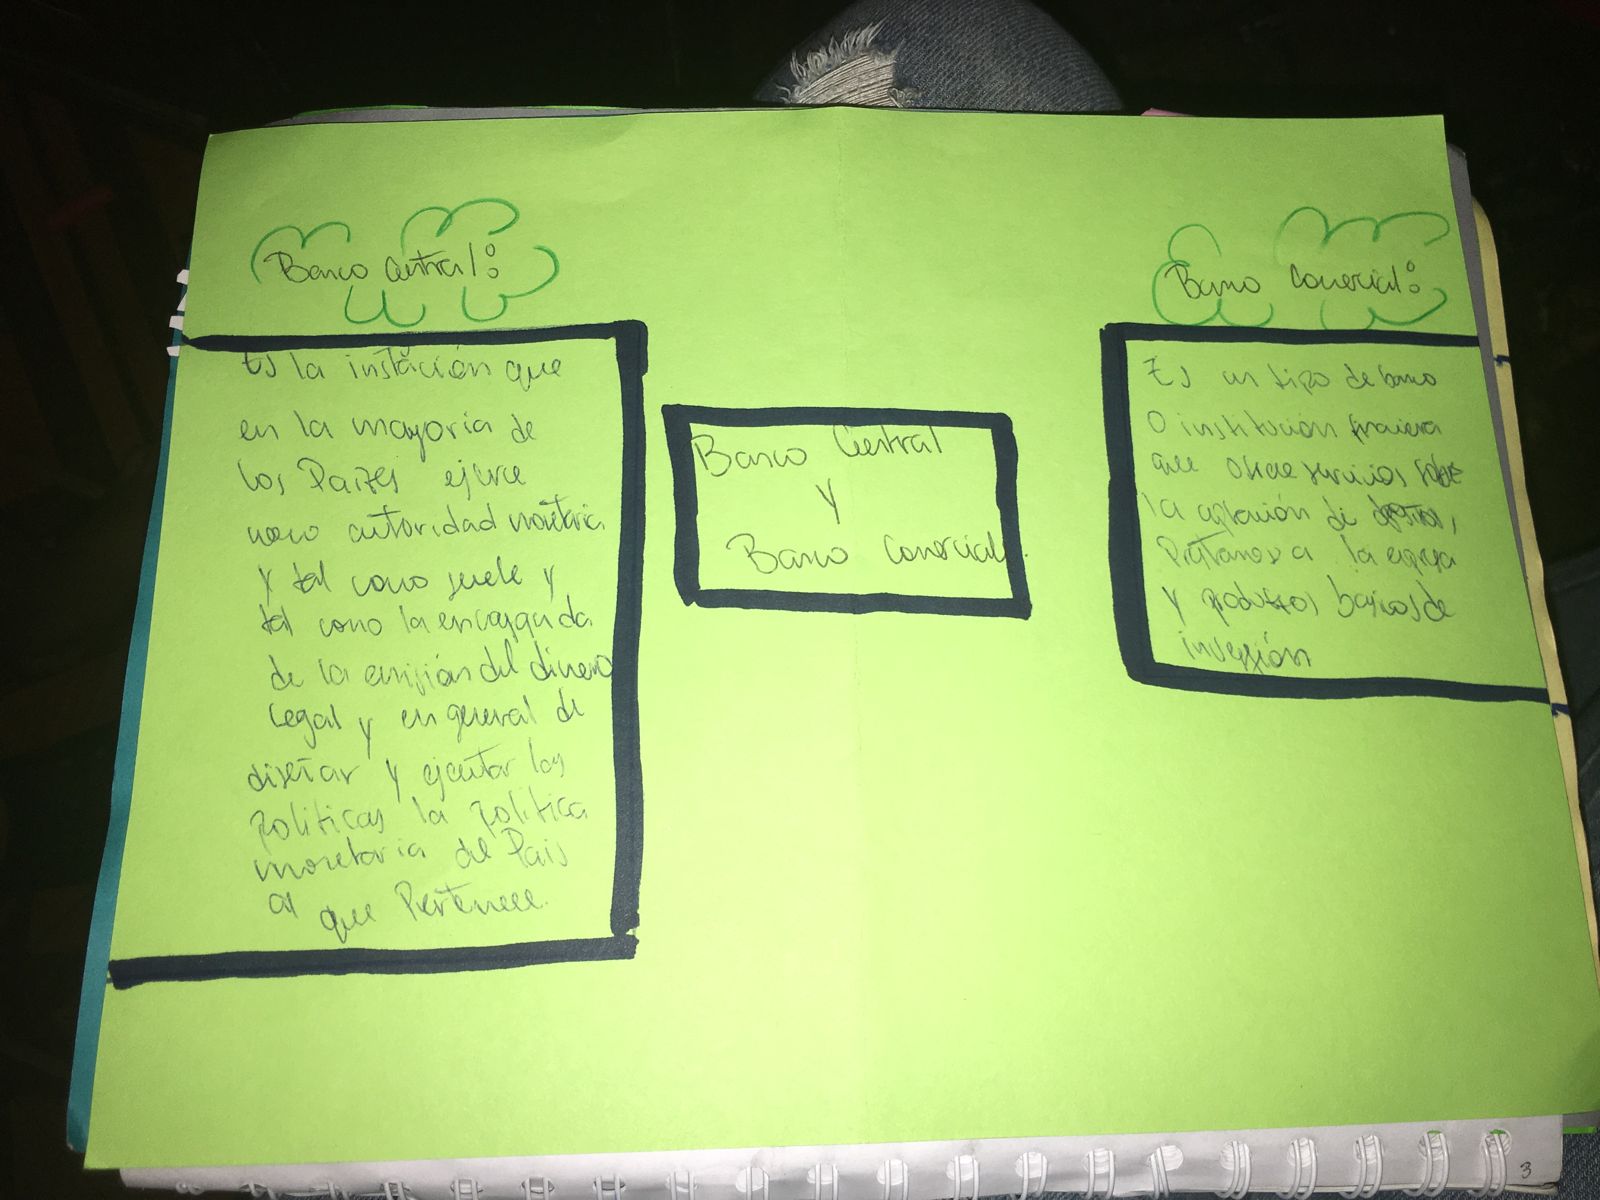 Banco Central:
Es la instución que
en la mayoria de
los Paizes ejerce
como autoridad monetaria
y tal como suele y
tal como la encargada
de la emisión del dinero
Legal y en general de
diseñar y ejecutar las
politicas la politica
monetaria del Pais
al que Pertenece.
Banco Central
y
Banco Comercial.
Banco Comercial:
Es un tipo de banco
O institución
que servicios sobre
la de
a la
y productos basicos de
inversión
3